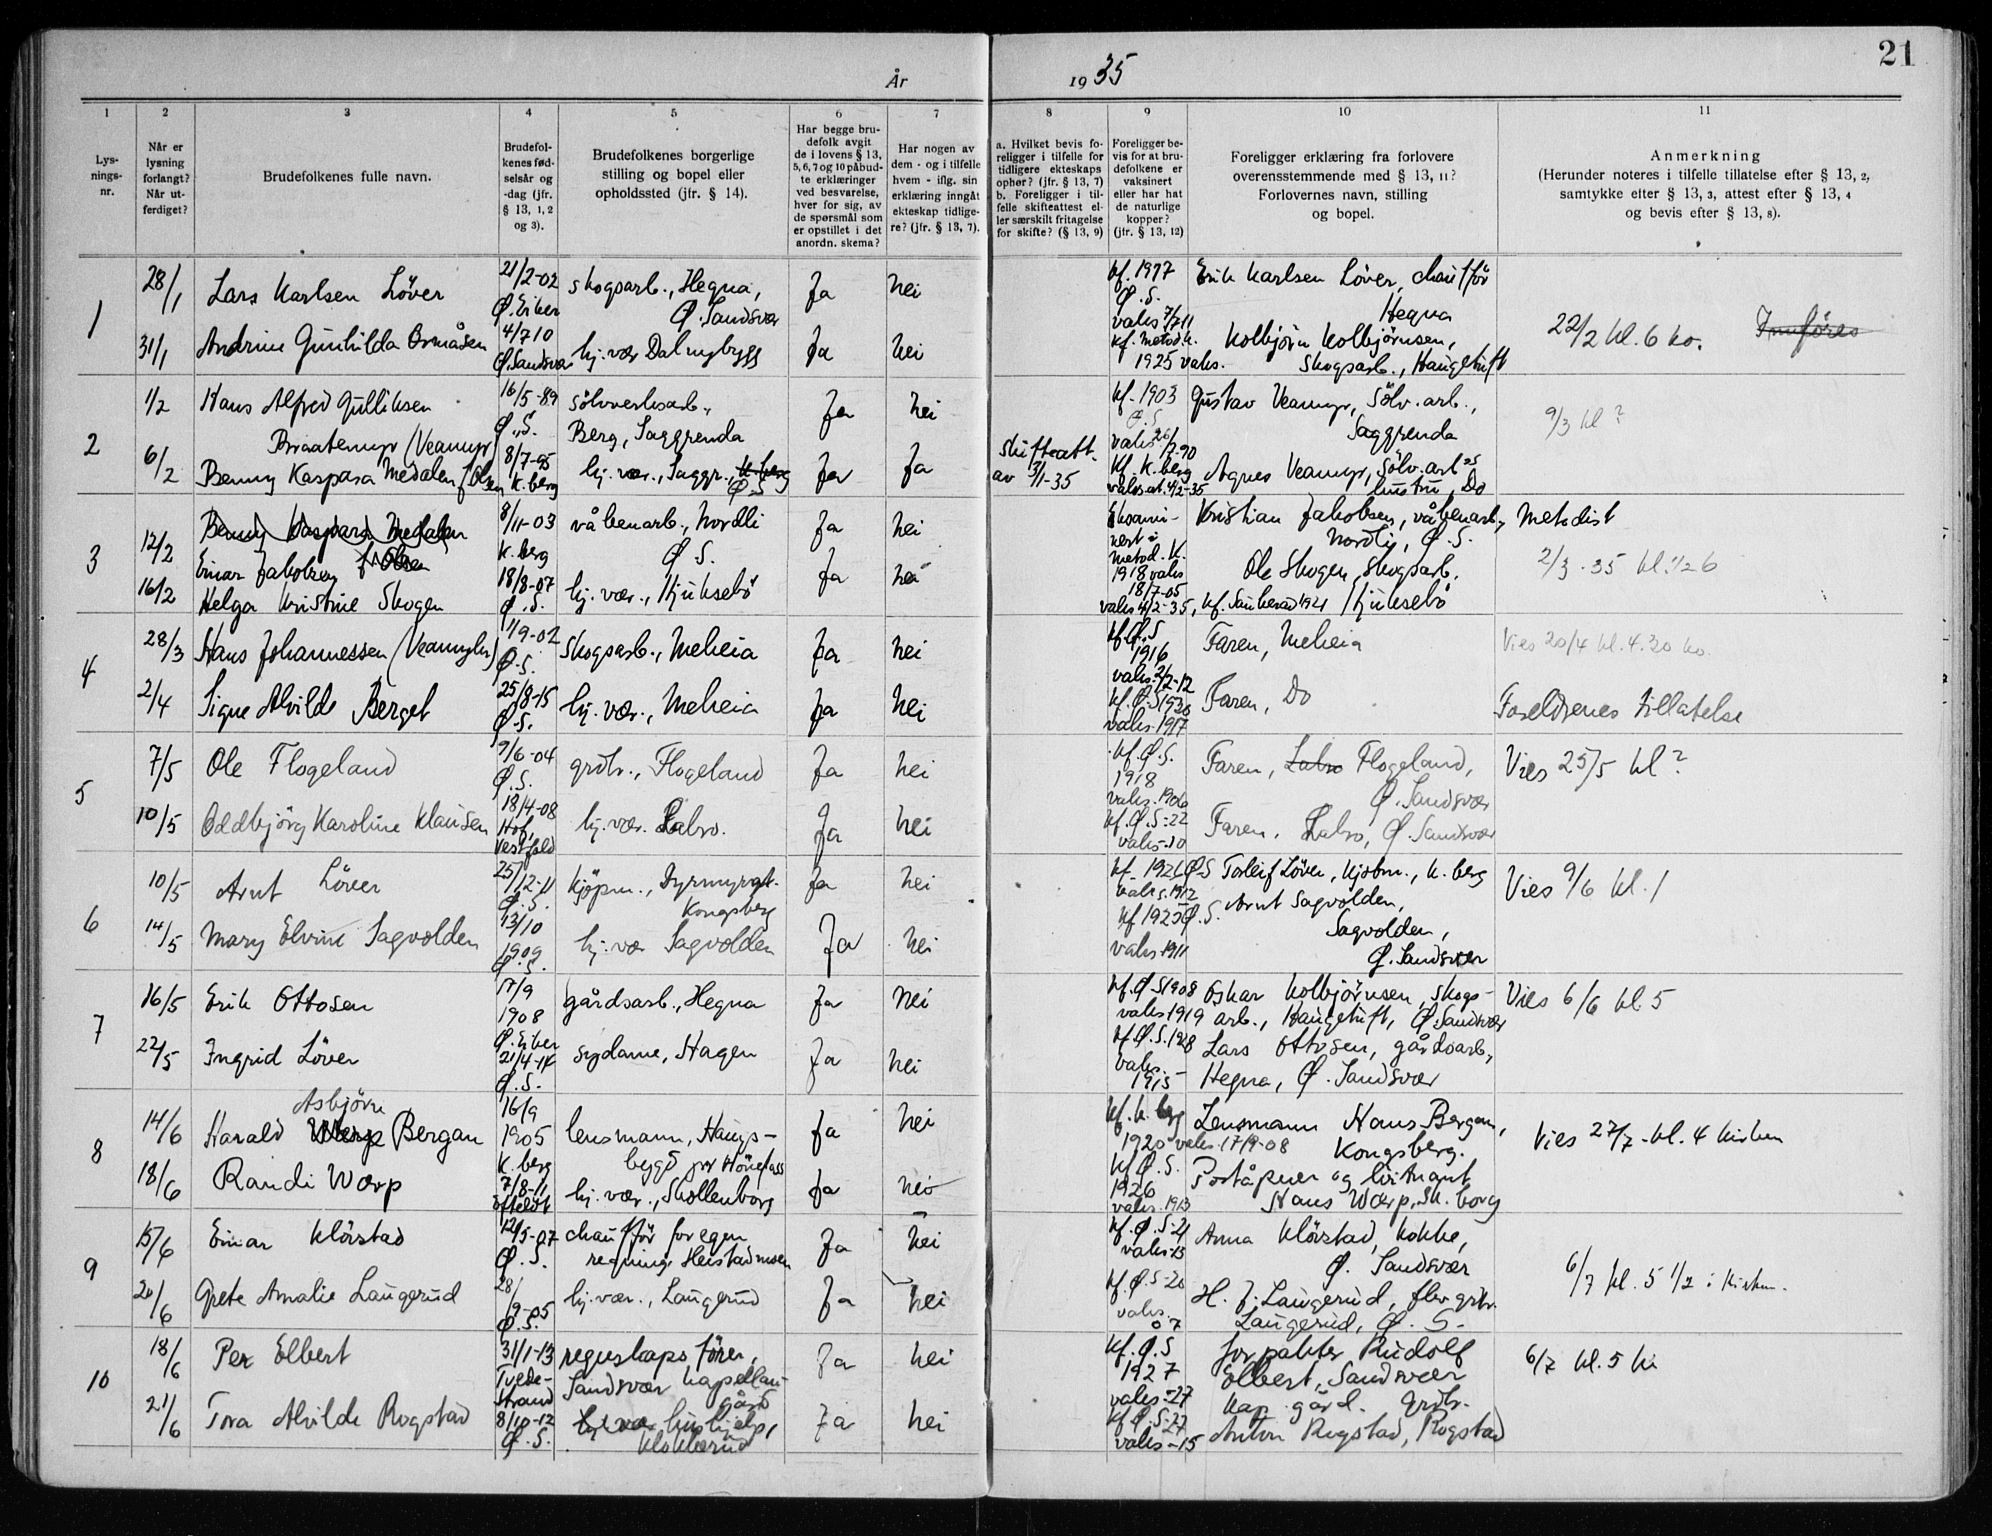 21
År
19 35
1
2
3
4
5
6
7
8
9
10
11
Lys-
nings-
nr.
Når er
lysning
forlangt?
Når ut-
ferdiget?
Brudefolkenes fulle navn.
Brudefol-
kenes fød-
selsår og
-dag (jfr.
§ 13, 1, 2
og 3).
Brudefolkenes borgerlige
stilling og bopel eller
opholdssted (jfr. § 14).
Har begge bru-
defolk avgit
de i lovens § 13,
5, 6, 7 og 10 påbud-
te erklæringer
ved besvarelse,
hver for sig, av
de spørsmål som
er opstillet i det
anordn. skema?
Har nogen av
dem - og i tilfelle
hvem - iflg. sin
erklæring inngåt
ekteskap tidlige-
re? (jfr. § 13, 7).
a. Hvilket bevis fo-
religger i tilfelle for
tidligere ekteskaps
ophør? (jfr. § 13, 7)
b. Foreligger i til-
felle skifteattest el-
ler særskilt fritagelse
for skifte? (§ 13, 9)
Foreligger be-
vis for at bru-
defolkene er
vaksinert
eller har hat
de naturlige
kopper?
(jfr. § 13, 12)
Foreligger erklæring fra forlovere
overensstemmende med § 13, 11?
Forlovernes navn, stilling
og bopel.
Anmerkning
(Herunder noteres i tilfelle tillatelse efter § 13, 2,
samtykke efter § 13, 3, attest efter § 13, 4
og bevis efter § 13, 8).
1
28/1 Lars Karlsen Löver 21/2-02 skogsarb., Hegna, Ja nei kf. 1917 Erik Karlsen Löver, chaufför
Ø. Eiker Ø. Sandsvær Ø.S. Hegna
31/1 Andrine Gunhilda Ormåsen 4/7 10 hj. vær Dalmybygg Ja nei kf. metod.k. Kolbjörn Kolbjörnsen, 22/2 kl. 6 ko. Innföres
Ø. Sandsvær 1925 vaks. Skogsarb., Haugetuft
2
1/2 Hans Alfred Gulliksen 16/5-89 sölvverksarb., Ja nei kf. 1903 Gustav Veamyr, Sölv. arb.,
Braatemyr (Veamyr) Ø.S. Berg, Saggrenda Ø.S. Saggrenda 9/3 kl ?
6/2 Benny Kaspara Medalen f. Olsen 8/7-95 hj. vær., Saggr., K.berg Ja Ja Skifteatt. kf. K.berg Agnes Veamyr, Sölv. arb.s
K.berg Ø.S av 3/1-35 vaks.at. 4/2-35 hustru, Do
3
12/2 Benny Kaspara Medalen 8/11-03 våbenarb., Nordli Ja nei Eksami- Kristian Jakobsen, våbenarb., Metodist
Einar Jakobsen f. Olsen K.berg Ø.S. nert i Nordli, Ø.S. 2/3-35 kl. 1/2 6
metod. K.
16/2 Helga Kristine Skogen 18/8-07 hj. vær., Hjuksebö Ja nei 1918 vaks Ole Skogen, Skogsarb.
Ø.S. 18/7-05
vaks 4/2-35, kf. Sauherad 1921 Hjuksebö
4
28/3 Hans Johannessen (Veamyhr) 1/9-02 Skogsarb., Meheia Ja nei kf.Ø.S Faren, Meheia Vies 20/4 kl. 4.30 ko.
Ø.S. 1916
vaks. 2/2-12
2/4 Signe Alvilde Berget 25/8-15 hj. vær., Meheia Ja nei kf. Ø.S 1930 Faren, Do Foreldrenes tillatelse
Ø.S. vaks. 1917
5
7/5 Ole Flogeland 9/6-04 grdbr., Flogeland Ja nei kf. Ø.S. Faren, Labro Flogeland, Vies 25/5 kl ?
Ø.S. 1918 Ø. Sandsvær
vaks. 1906
10/5 Oddbjörg Karoline Klausen 18/4-08 hj. vær. Labro. Ja nei kf. Ø.S-22 Faren, Labro, Ø. Sandsvær
Hof, Vestfold vaks-10
6
10/5 Arnt Löver 25/12-11 kjöpm., Dyrmyrgt. Ja nei kf. 1926 Ø.S Torleif Löver, Kjöbm., K. berg Vies 9/6 kl. 1
Ø.S. Kongsberg vaks. 1912
14/5 Mary Elvine Sagvolden 13/10 hj. vær Sagvolden Ja nei kf 1925 Ø.S. Arnt Sagvolden,
1909 Sagvolden,
Ø.S. vaks 1911 Ø. Sandsvær
7
16/5 Erik Ottosen 17/9 gårdsarb., Hegna Ja nei kf. Ø.S 1908 Oskar Kolbjörnsen, Skogs- Vies 6/6 kl. 5
1908 vaks 1919 arb., Haugetuft, Ø. Sandsvær
Ø. Eiker
22/5 Ingrid Löver 21/4-14 sydame, Hagen Ja nei kf. Ø.S. 1928 Lars Ottosen, gårdsarb.,
Ø.S. vaks. 1915 Hegna, Ø. Sandsvær
8
Asbjörn
14/6 Harald Bergan 16/9 lensmann, Haugs- Ja nei kf. K. berg Lensmann Hans Bergan,
1905 bygd pr Hönefoss 1920 vaks. 17/9-08 Kongsberg. Vies 27/7-kl. 4 kirken
K. berg
18/6 Randi Wærp 7/8-11 hj. vær., Skollenborg Ja nei kf. Ø.S. Poståpner og löitnant
1926 Hans Wærp, Sk. borg
vaks. 1913
9
15/6 Einar Klörstad 12/5-07 chauffør for egen Ja nei kf. Ø.S-21 Anna Klörstad, Kokke,
Ø.S. regning, Heistadmoen vaks-13 Ø. Sandsvær 6/7 kl. 5 1/2 i Kirken.
20/6 Grete Amalie Laugerud 28/ hj. vær., Laugerud Ja nei kf. Ø.S-20 H. J. Laugerud, fhv. grbr.
9-05 vaks. 07 Laugerud, Ø.S.
Ø.S.
10
18/6 Per Elbert 31/1-13 regnskapsförer, Ja nei kf. Ø.S forpakter Rudolf 6/7 kl. 5 ki
Tvede- Sandsvær kapellan- 1927 Elbert, Sandsvær
strand gård vaks-27 kap. gård. Grdbr.
21/6 Tora Alvilde Rogstad 8/10-12 hj. vær hushjelp, Ja nei kf. Ø.S-27 Anton Rogstad, Rogstad
Ø.S. Klokkerud vaks-15